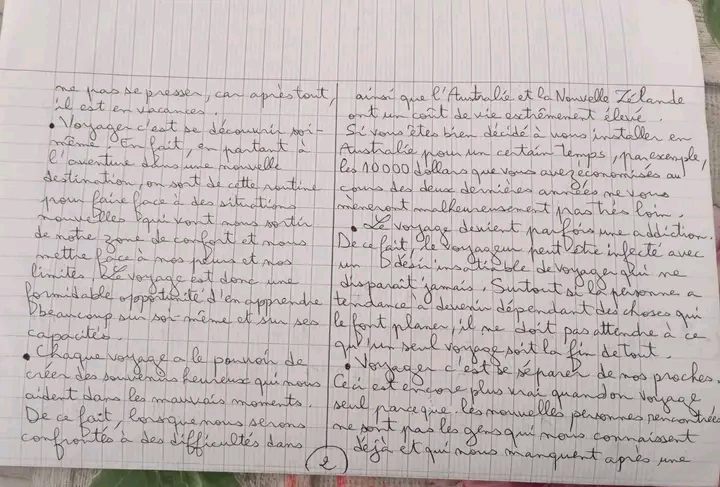 ne pas se presser, car après tout,
il est en vacances.
• Voyager c'est se découvrir soi-
même. En fait, en partant à
l'aventure dans une nouvelle
destination, on sort de cette routine
pour faire face à des situations
nouvelles qui vont nous sortir
de notre zone de confort et nous
mettre face à nos peurs et nos
limites. Le voyage est donc une
formidable opportunité d'en apprendre
beaucoup sur soi-même et sur ses
capacités.
• Chaque voyage a le pouvoir de
créer des souvenirs heureux qui nous
aident dans les mauvais moments.
De ce fait, lorsque nous serons
confrontés à des difficultés dans
ainsi que l'Australie et la Nouvelle Zélande
ont un coût de vie extrêmement élevé.
Si vous êtes bien décidé à vous installer en
Australie pour un certain temps, par exemple,
les 10 000 dollars que vous avez économisés au
cours des deux dernières années ne vous
mèneront malheureusement pas très loin.
• Le voyage devient parfois une addiction.
De ce fait, le voyageur peut être infecté avec
un désir insatiable de voyager qui ne
disparait jamais. Surtout si la personne a
tendance à devenir dépendant des choses qui
le font planer, il ne doit pas attendre à ce
qu'un seul voyage soit la fin de tout.
• Voyager c'est se séparer de nos proches.
Ceci est encore plus vrai quand on voyage
seul parce que les nouvelles personnes rencontrées
ne sont pas les gens qui nous connaissent
déjà et qui nous manquent après une
2